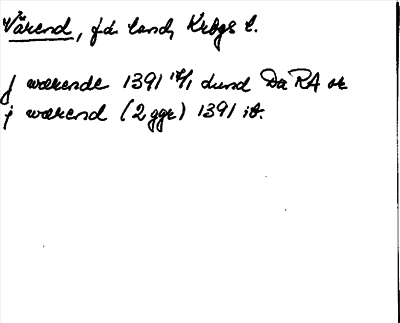 Värend, f.d. land, Krbgs l.
j wærende 1391 18/1 Lund Da RA or
j wærend (2 ggr) 1391 ib.